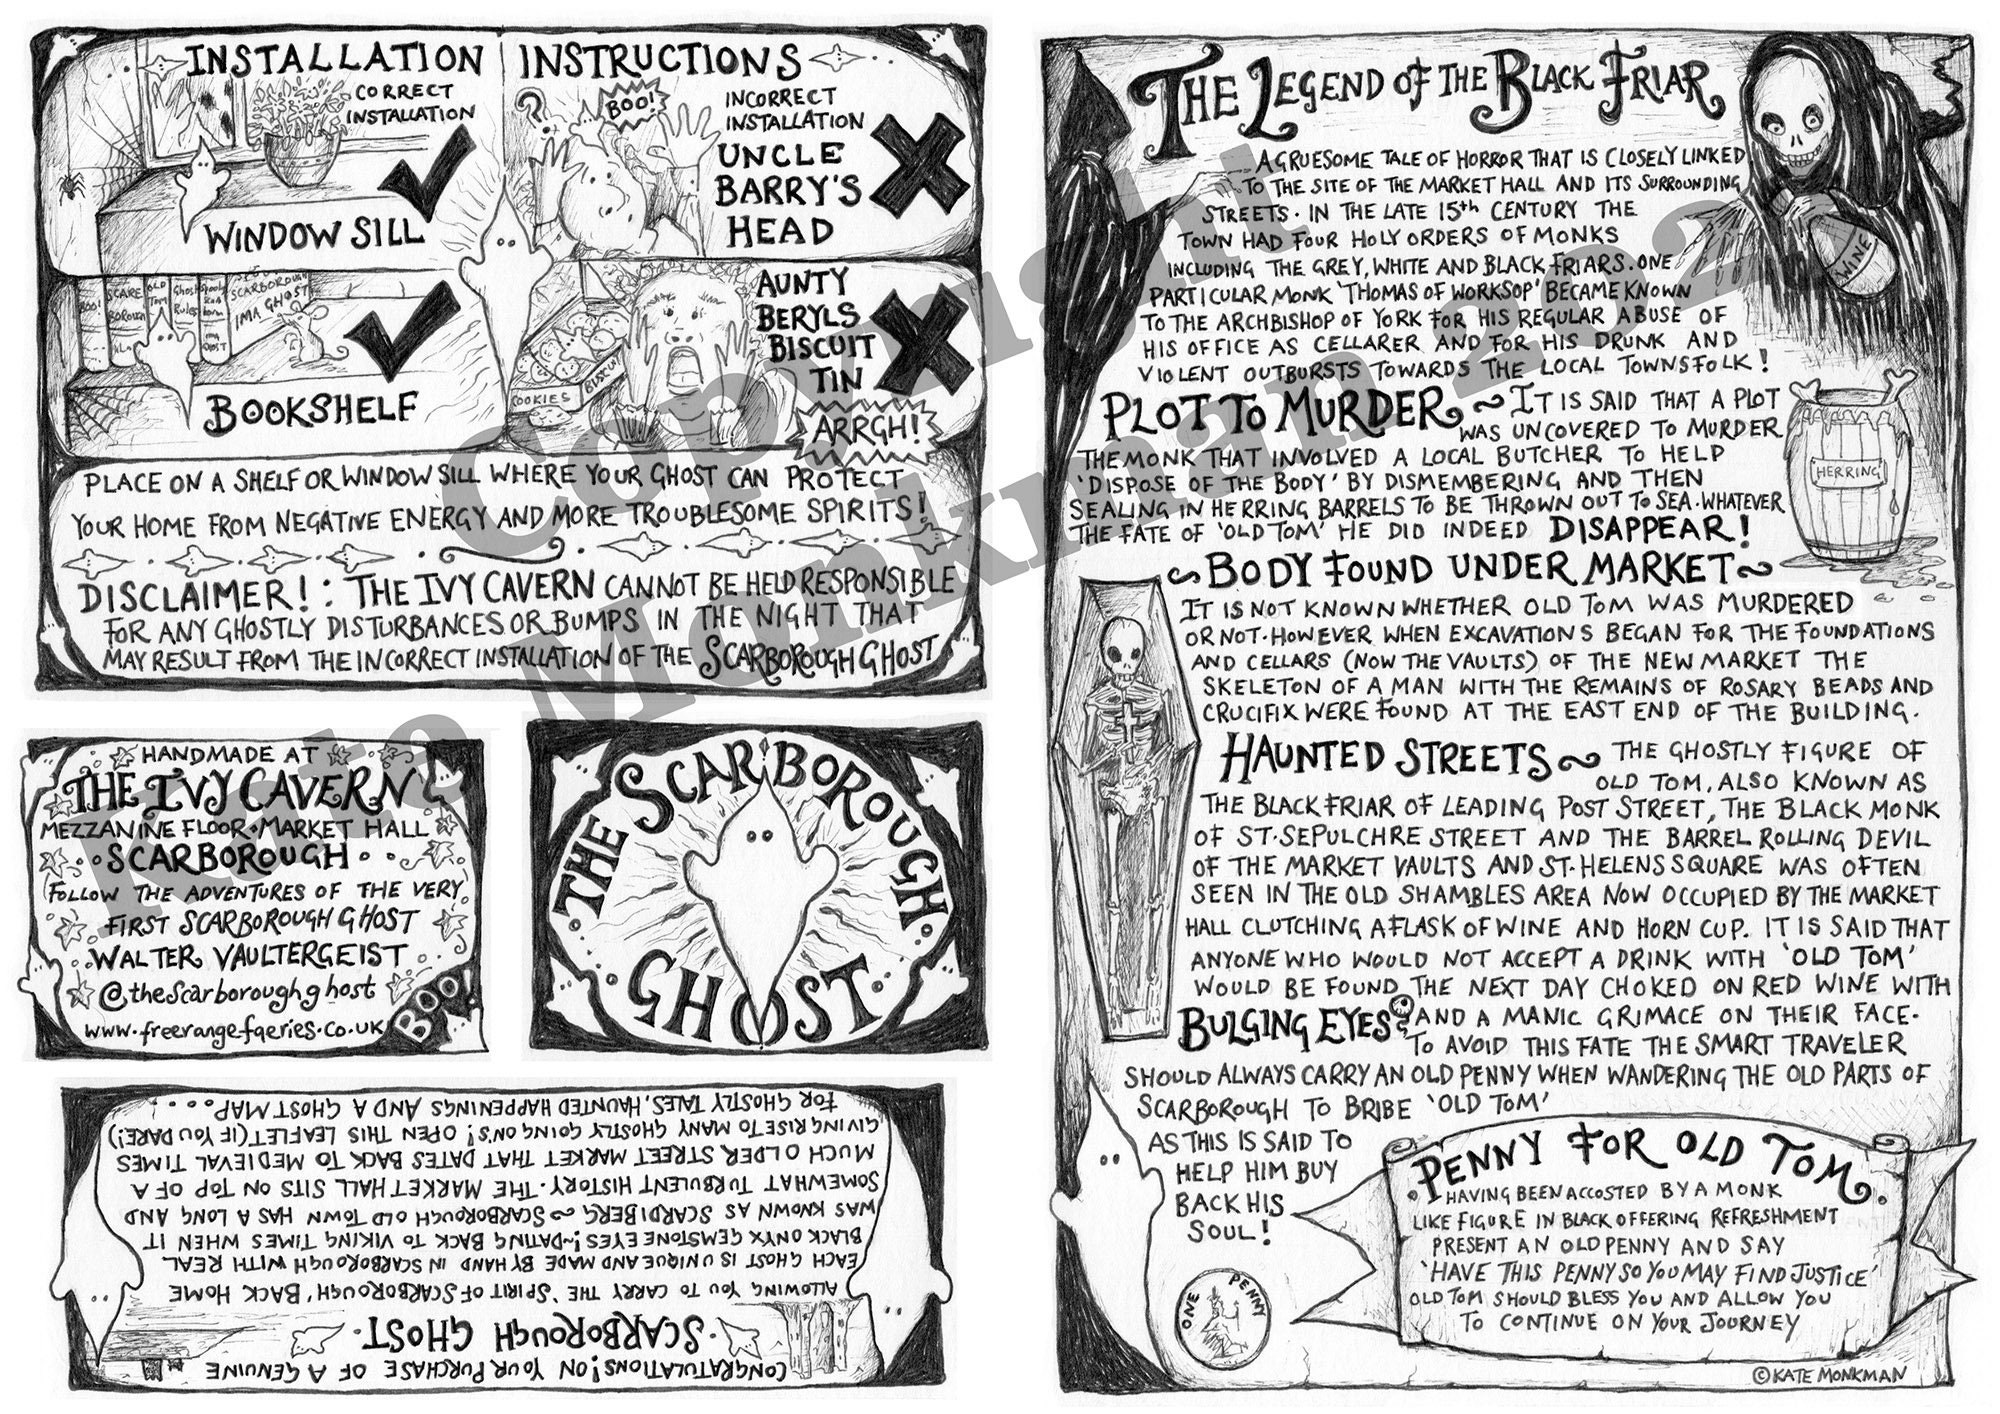 INSTALLATION INSTRUCTIONS
CORRECT
INSTALLATION
WINDOW SILL
?
BOO!
INCORRECT
INSTALLATION
UNCLE
BARRY'S
HEAD
BOO!
SCARE
BOROUGH
OLD
TOM
GHOST
RULES
SCARBOROUGH
IMA GHOST
BOOKSHELF
COOKIES
AUNTY
BERYLS
BISCUIT
TIN
ARRGH!
PLACE ON A SHELF OR WINDOW SILL WHERE YOUR GHOST CAN PROTECT
YOUR HOME FROM NEGATIVE ENERGY AND MORE TROUBLESOME SPIRITS!
DISCLAIMER!: THE IVY CAVERN CANNOT BE HELD RESPONSIBLE
FOR ANY GHOSTLY DISTURBANCES OR BUMPS IN THE NIGHT THAT
MAY RESULT FROM THE INCORRECT INSTALLATION OF THE SCARBOROUGH GHOST
HANDMADE AT
THE IVY CAVERN
MEZZANINE FLOOR·MARKET HALL
SCARBOROUGH
FOLLOW THE ADVENTURES OF THE VERY
FIRST SCARBOROUGH GHOST
WALTER VAULTERGEIST
@thescarboroughghost
www.freerangefaeries.co.uk
BOO!
THE SCARBOROUGH
GHOST
CONGRATULATIONS! ON YOUR PURCHASE OF A GENUINE
·SCARBOROUGH GHOST·
ALLOWING YOU TO CARRY THE 'SPIRIT OF SCARBOROUGH, BACK HOME
EACH GHOST IS UNIQUE AND MADE BY HAND IN SCARBOROUGH WITH REAL
BLACK ONYX GEMSTONE EYES!~DATING BACK TO VIKING TIMES WHEN IT
WAS KNOWN AS SCARDIBERG ~ SCARBOROUGH OLD TOWN HAS A LONG AND
SOMEWHAT TURBULENT HISTORY·THE MARKET HALL SITS ON TOP OF A
MUCH OLDER STREET MARKET THAT DATES BACK TO MEDIEVAL TIMES
GIVING RISE TO MANY GHOSTLY GOING ON'S! OPEN THIS LEAFLET (IF YOU DARE!)
FOR GHOSTLY TALES, HAUNTED HAPPENINGS AND A GHOST MAP....
THE LEGEND OF THE BLACK FRIAR
A GRUESOME TALE OF HORROR THAT IS CLOSELY LINKED
TO THE SITE OF THE MARKET HALL AND ITS SURROUNDING
STREETS· IN THE LATE 15th CENTURY THE
TOWN HAD FOUR HOLY ORDERS OF MONKS
INCLUDING THE GREY, WHITE AND BLACK FRIARS. ONE
PARTICULAR MONK 'THOMAS OF WORKSOP' BECAME KNOWN
TO THE ARCHBISHOP OF YORK FOR HIS REGULAR ABUSE OF
HIS OFFICE AS CELLARER AND FOR HIS DRUNK AND
VIOLENT OUTBURSTS TOWARDS THE LOCAL TOWNSFOLK!
WINE
PLOT TO MURDER ~ IT IS SAID THAT A PLOT
WAS UNCOVERED TO MURDER
THE MONK THAT INVOLVED A LOCAL BUTCHER TO HELP
'DISPOSE OF THE BODY' BY DISMEMBERING AND THEN
SEALING IN HERRING BARRELS TO BE THROWN OUT TO SEA·WHATEVER
THE FATE OF 'OLD TOM' HE DID INDEED DISAPPEAR!
HERRING
~BODY FOUND UNDER MARKET~
IT IS NOT KNOWN WHETHER OLD TOM WAS MURDERED
OR NOT·HOWEVER WHEN EXCAVATIONS BEGAN FOR THE FOUNDATIONS
AND CELLARS (NOW THE VAULTS) OF THE NEW MARKET THE
SKELETON OF A MAN WITH THE REMAINS OF ROSARY BEADS AND
CRUCIFIX WERE FOUND AT THE EAST END OF THE BUILDING.
HAUNTED STREETS ~ THE GHOSTLY FIGURE OF
OLD TOM, ALSO KNOWN AS
THE BLACK FRIAR OF LEADING POST STREET, THE BLACK MONK
OF ST·SEPULCHRE STREET AND THE BARREL ROLLING DEVIL
OF THE MARKET VAULTS AND ST·HELENS SQUARE WAS OFTEN
SEEN IN THE OLD SHAMBLES AREA NOW OCCUPIED BY THE MARKET
HALL CLUTCHING A FLASK OF WINE AND HORN CUP. IT IS SAID THAT
ANYONE WHO WOULD NOT ACCEPT A DRINK WITH 'OLD TOM'
WOULD BE FOUND THE NEXT DAY CHOKED ON RED WINE WITH
BULGING EYES AND A MANIC GRIMACE ON THEIR FACE·
TO AVOID THIS FATE THE SMART TRAVELER
SHOULD ALWAYS CARRY AN OLD PENNY WHEN WANDERING THE OLD PARTS OF
SCARBOROUGH TO BRIBE 'OLD TOM'
AS THIS IS SAID TO
HELP HIM BUY
BACK HIS
SOUL!
ONE PENNY
PENNY FOR OLD TOM
HAVING BEEN ACCOSTED BY A MONK
LIKE FIGURE IN BLACK OFFERING REFRESHMENT
PRESENT AN OLD PENNY AND SAY
'HAVE THIS PENNY SO YOU MAY FIND JUSTICE'
OLD TOM SHOULD BLESS YOU AND ALLOW YOU
TO CONTINUE ON YOUR JOURNEY
©KATE MONKMAN
Copyright
Kate Monkman 202